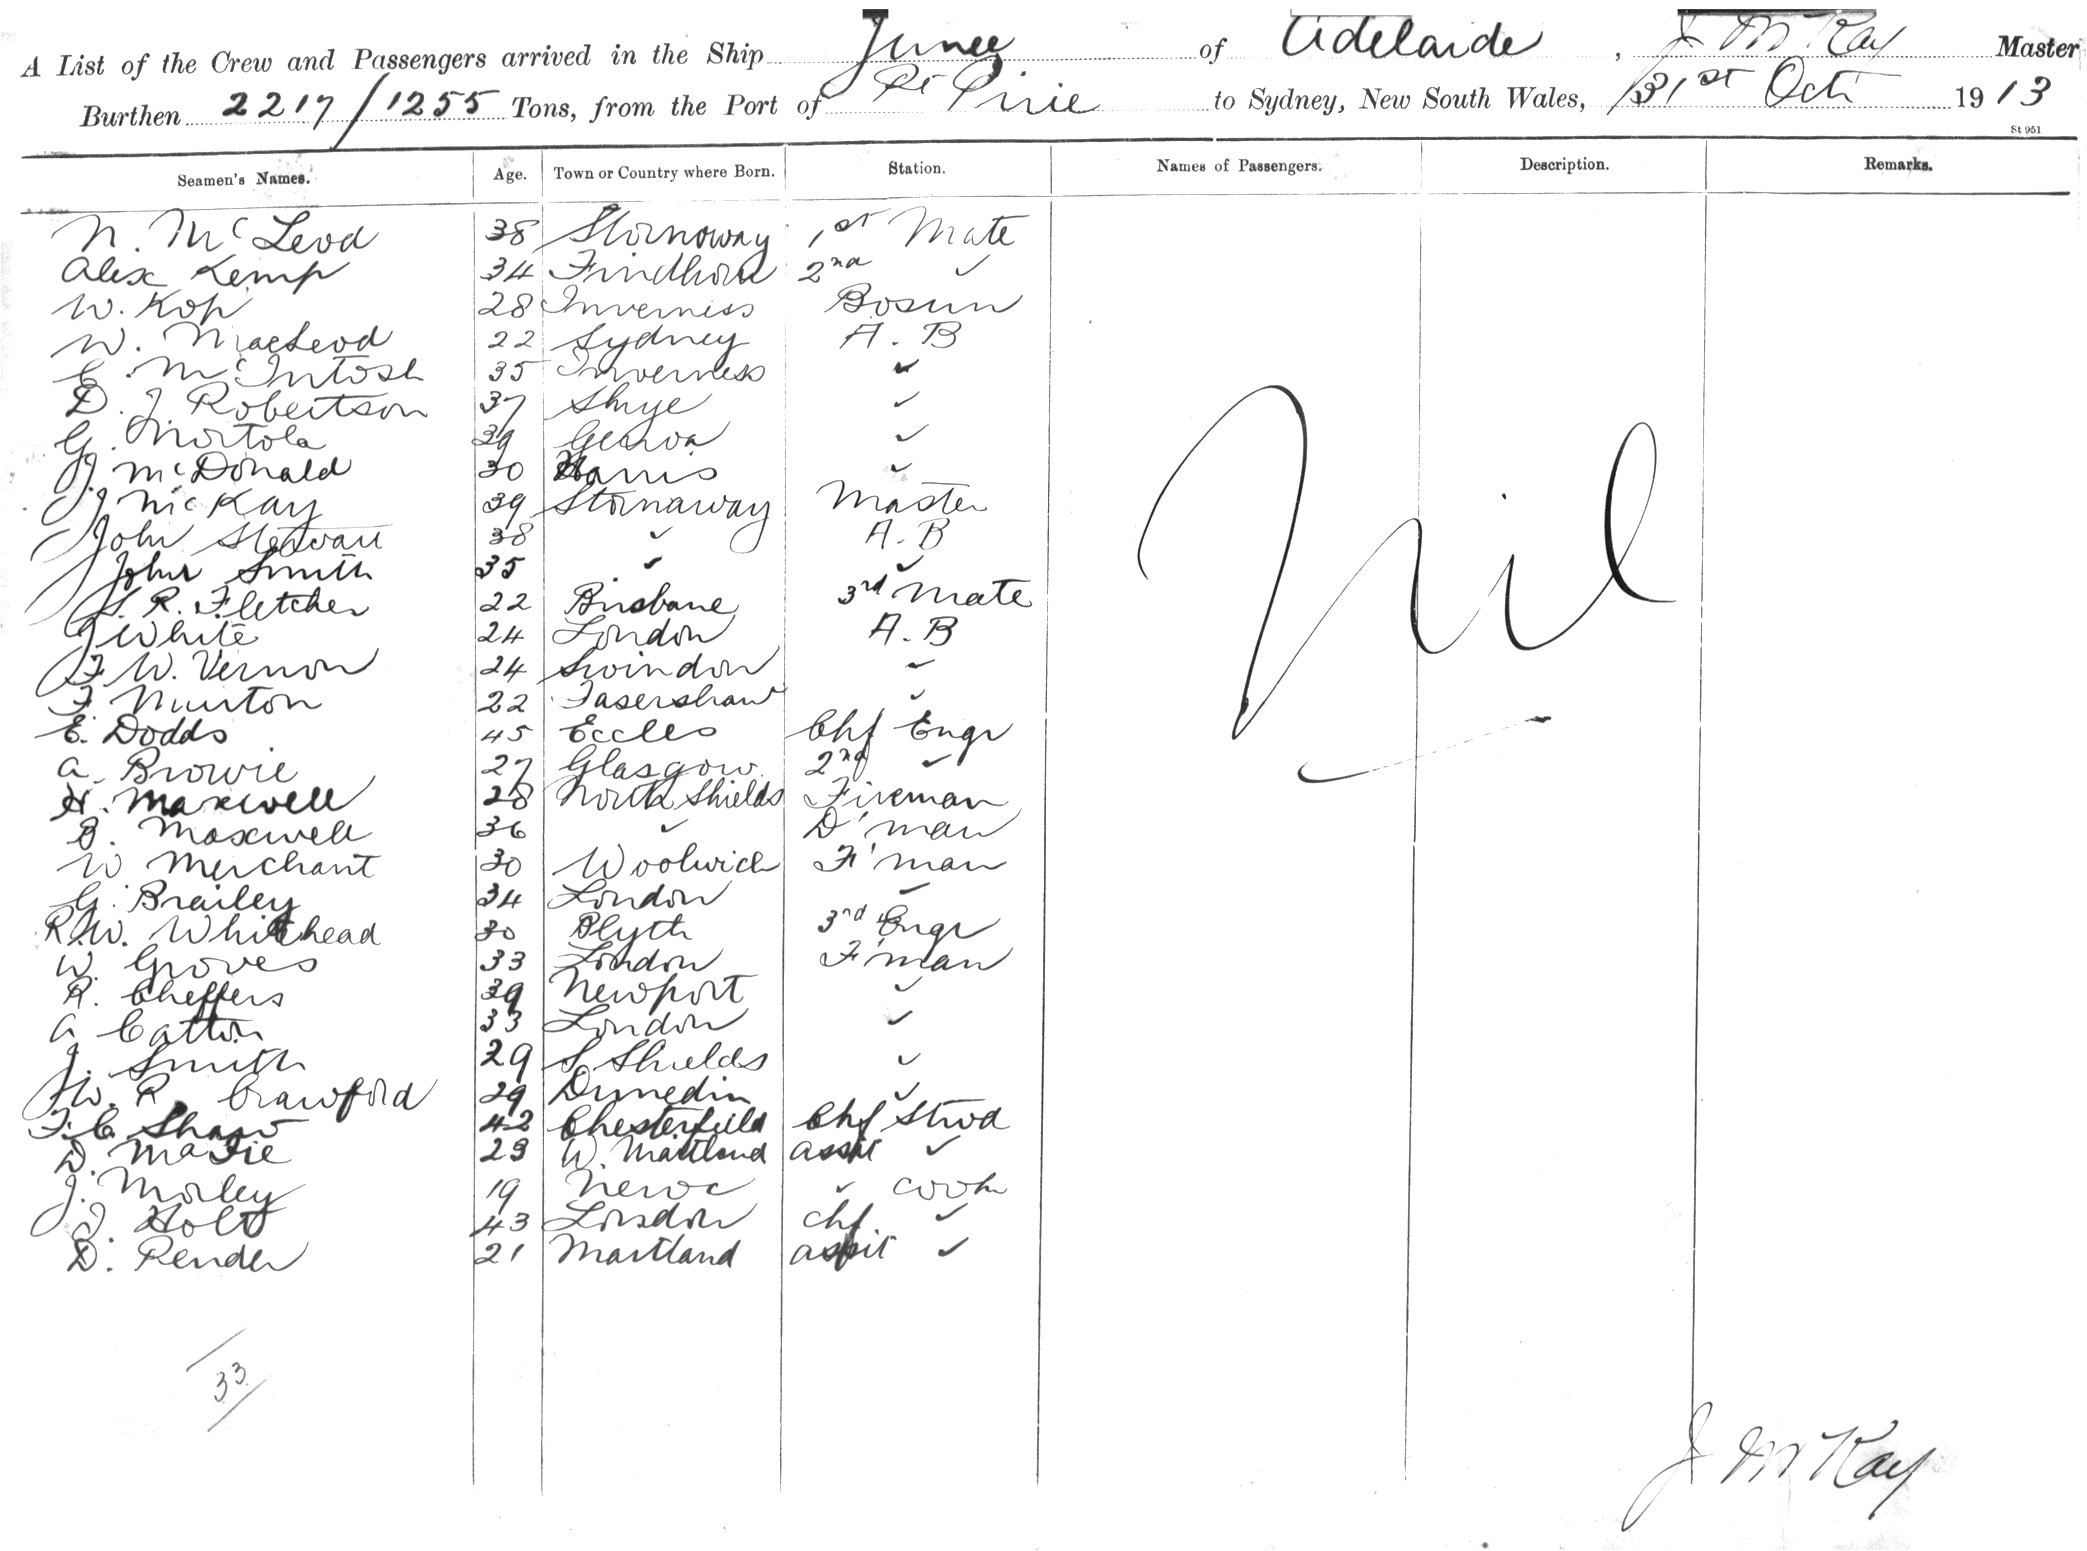 A List of the Crew and Passengers arrived in the Ship Junee of Adelaide, J McKay Master
Burthen 2217/1255 Tons, from the Port of Pt Pirie to Sydney, New South Wales, 31st Oct 1913
St 951
Seamen's Names. Age. Town or Country where Born. Station. Names of Passengers. Description. Remarks.
N. McLeod 38 Stornoway 1st Mate
Alex Kemp 34 Findhorn 2nd ✓
W. Kop 28 Inverness Bosun
W. MacLeod 22 Sydney A.B
C. McIntosh 35 Inverness ✓
D. J Robertson 37 Skye ✓
G. Mortola 39 Genoa ✓
J McDonald 30 Harris ✓
J McKay 39 Stornaway Master
John Stewart 38 ✓ A.B
John Smith 35 ✓ ✓
S. R. Fletcher 22 Brisbane 3rd Mate
J White 24 London A.B
F. W. Vernon 24 Swindon ✓
F. Munton 22 ✓
E. Dodds 45 Eccles Chf Engr
A. Browie 27 Glasgow. 2nd ✓
H. Maxwell 28 North Shields Fireman
B. Maxwell 36 ✓ D'man
W Merchant 30 Woolwich F'man
G. Brailey 34 London ✓
R.W. Whitehead 30 Blyth 3rd Engr
W. Groves 33 London F'man
R. Cheffers 39 Newport ✓
A Catton 33 London ✓
J. Smith 29 S. Shields ✓
W. R Crawford 29 Dunedin ✓
F. C. Shaw 42 Chesterfield Chf Stwd
D. 23 W. Maitland Assit ✓
J. Morley 19 ✓ Cook
J. Holt 43 London Chf. ✓
D. Render 21 Maitland Assit ✓
Nil
33
J McKay